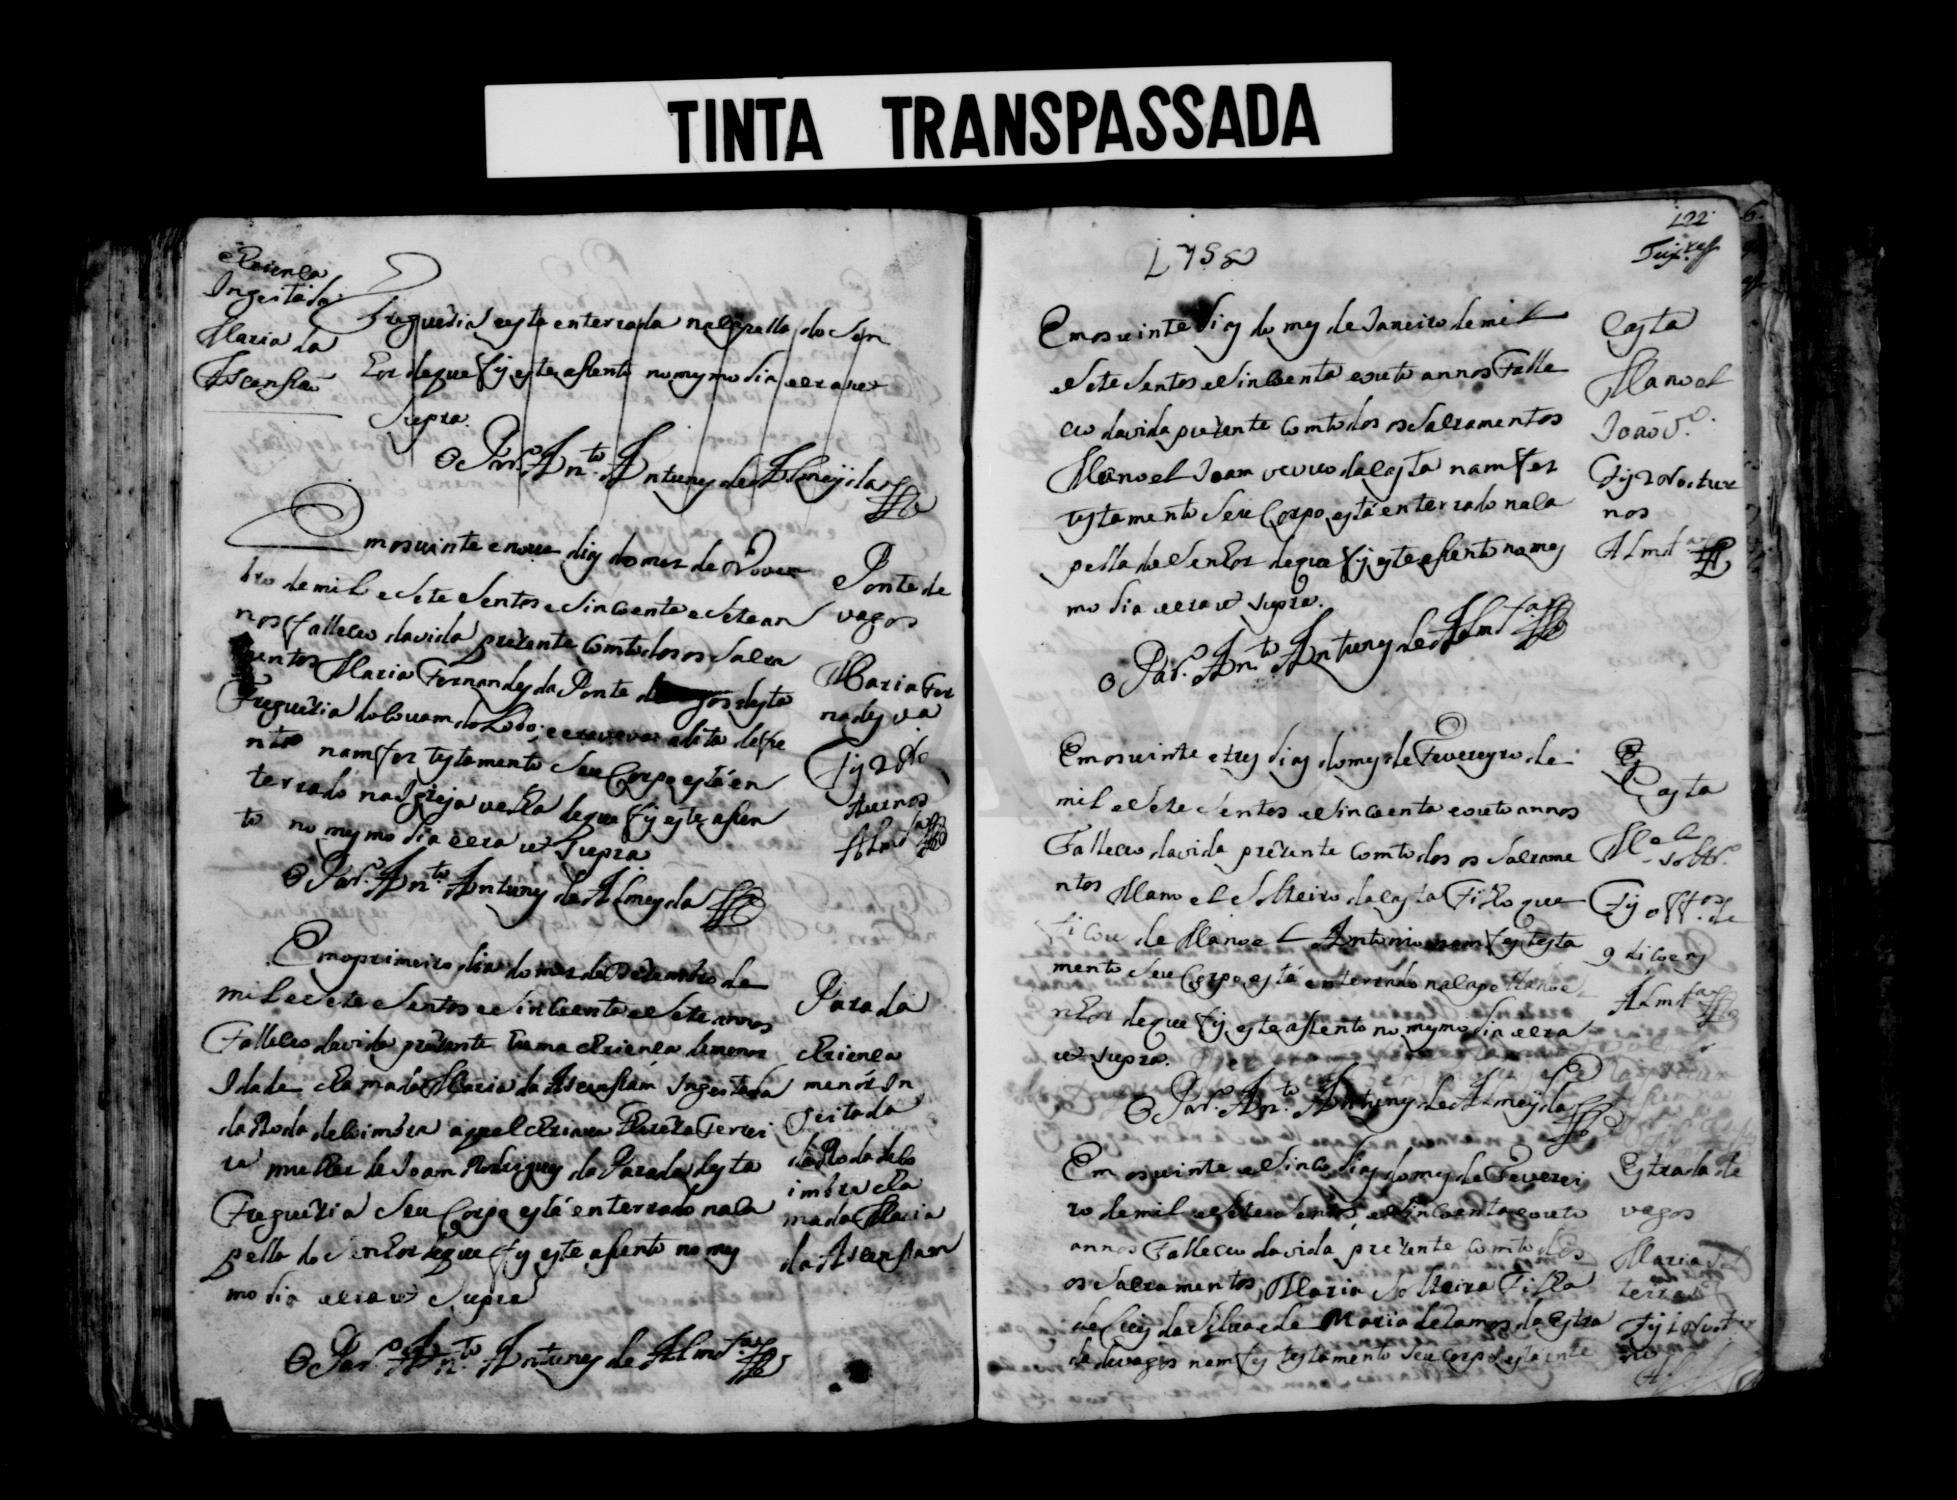 TINTA TRANSPASSADA
Crienca
Ingeitada
Maria da
Ascensaõ
Freguezia esta enterrada na Capella do Sen
hor de que fis este asento no mesmo dia e era ut
Supra.
O Par.º An.to Antunes de Almeyda
Em os vinte e nove dias do mes de Novem
bro de mil e sete sentos e sincoenta e sete an
nos falleceo da vida prezente com todos os Sacra
mentos Maria Fernandes da Ponte de vagos desta
Freguezia do Covam do Lobo; e era veuva a dita defun
nta nam fez testamento seu Corpo está en
terrado na Igreja velha de que fis este asen
to no mesmo dia e era ut Supra
O Par.º An.to Antunes de Almeyda
Ponte de
vagos
Maria Fer
nades va
Fis 2 No
turnos
Almda
Em o primeiro dia do mes de Dezembro de
mil e sete sentos e sincoenta e sete annos
Falleceo da vida prezente huma Crienca de menor
Idade chamada Maria da Ascensam Ingeitada
da Roda de Coimbra a qual Criava Thereza Ferrei
ra mulher de Joam Rodrigues da Parada desta
Freguezia Seu Corpo está enterrado na Ca
pella do Senhor de que fis este asento no mes
mo dia e era ut Supra
O Par.º An.to Antunes de Almda
Parada
Crienca
menór In
geitada
da Roda de Co
imbra cha
mada Maria
da Ascensam
122
1758
Em os vinte dias do mes de Janeiro de mil
e sete sentos e sincoenta e outo annos Falle
ceo da vida prezente com todos os Sacramentos
Manoel Joam veuvo da Costa nam fez
testamento Seu Corpo está enterrado na Ca
pella do Senhor de que fis este asento no mes
mo dia e era ut Supra.
O Par.º An.to Antunes de Almda
Costa
Manoel
Joaõ v.º
Fis 2 Noctur
nos
Almda
Em os vinte e tres dias do mes de Fevereyro de
mil e sete sentos e sincoenta e outo annos
Falleceo da vida prezente com todos os Sacrame
ntos Manoel Solteiro da Costa Filho que
ficou de Manoel Antonio nam fes testa
mento Seu Corpo está enterrado na Capella do Se
nhor de que fis este asento no mesmo dia e era
ut Supra.
O Par.º An.to Antunes de Almeyda
Costa
M.el
Soltr.º
Fis off.os de
9 licoens
Almda
Em os vinte e sinco dias do mes de Feverei
ro de mil e sete sentos e sincoenta e outo
annos Falleceo da vida prezente com todos
os Sacramentos Maria Solteira Filha
de Luis da Silva e de Maria de Ramos da Estra
da de vagos nam fes testamento Seu corpo está ente
Estrada de
vagos
Maria Sol
teira
Fis 2 Noctur
no